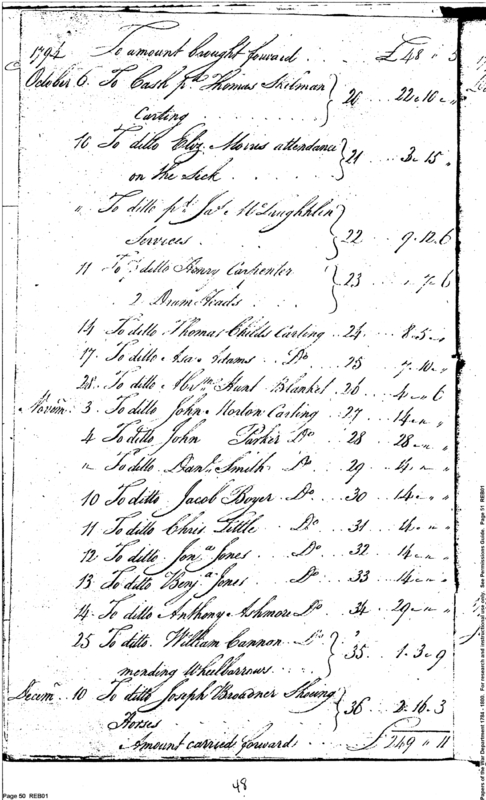 1794 To amount brought forward . . . £ 48 " 5
October 6. To Cash pd. Thomas Skilman
Carting . . . . } 20 . . 22 " 10 "
10 To ditto Eliz. Morris attendance
on the Sick . . . . } 21 . . 3 " 15 "
" To ditto pd. Jas. McLaughhlin
Services . . . } 22 . . 9 . 12 . 6
11 To ditto Henry Carpenter
2 Drum Heads . . . } 23 . . " 7 " 6
14 To ditto Thomas Childs Carting . 24 . . 8 . 5 "
17. To ditto Adams . . Do 25 . . 7 . 10 "
28. To ditto Abrm. Hunt Blanket . 26 . . 4 " 6
Novem. 3. To ditto John Norton Carting . 27 . . 14 " "
4 To ditto John Parker Do . 28 . . 28 " "
" To ditto Danl. Smith . Do . 29 . . 4 " "
10 To ditto Jacob Boyer . Do . . 30 . . 14 " "
11 To ditto Chrisr. Little . . Do . . 31 . . 4 " "
12. To ditto Jonas. Jones . . Do . . 32 . . 14 " "
13. To ditto Benja. Jones . . Do . . 33 . . 14 " "
14. To ditto Anthony Ashmore Do . 34 . . 29 " "
25 To ditto. William Cannon Do
mending Wheelbarrows . . . } 35 . . 1 . 3 " 9
Decem. 10 To ditto Joseph Broadner Shoeing
Horses } 36 . . 2 . 16 . 3
Amount carried forward . . £ 249 " 11
48
Page 50 REB01
Page 51 REB01
Papers of the War Department 1784 - 1800. For research and instructional use only. See Permissions Guide.